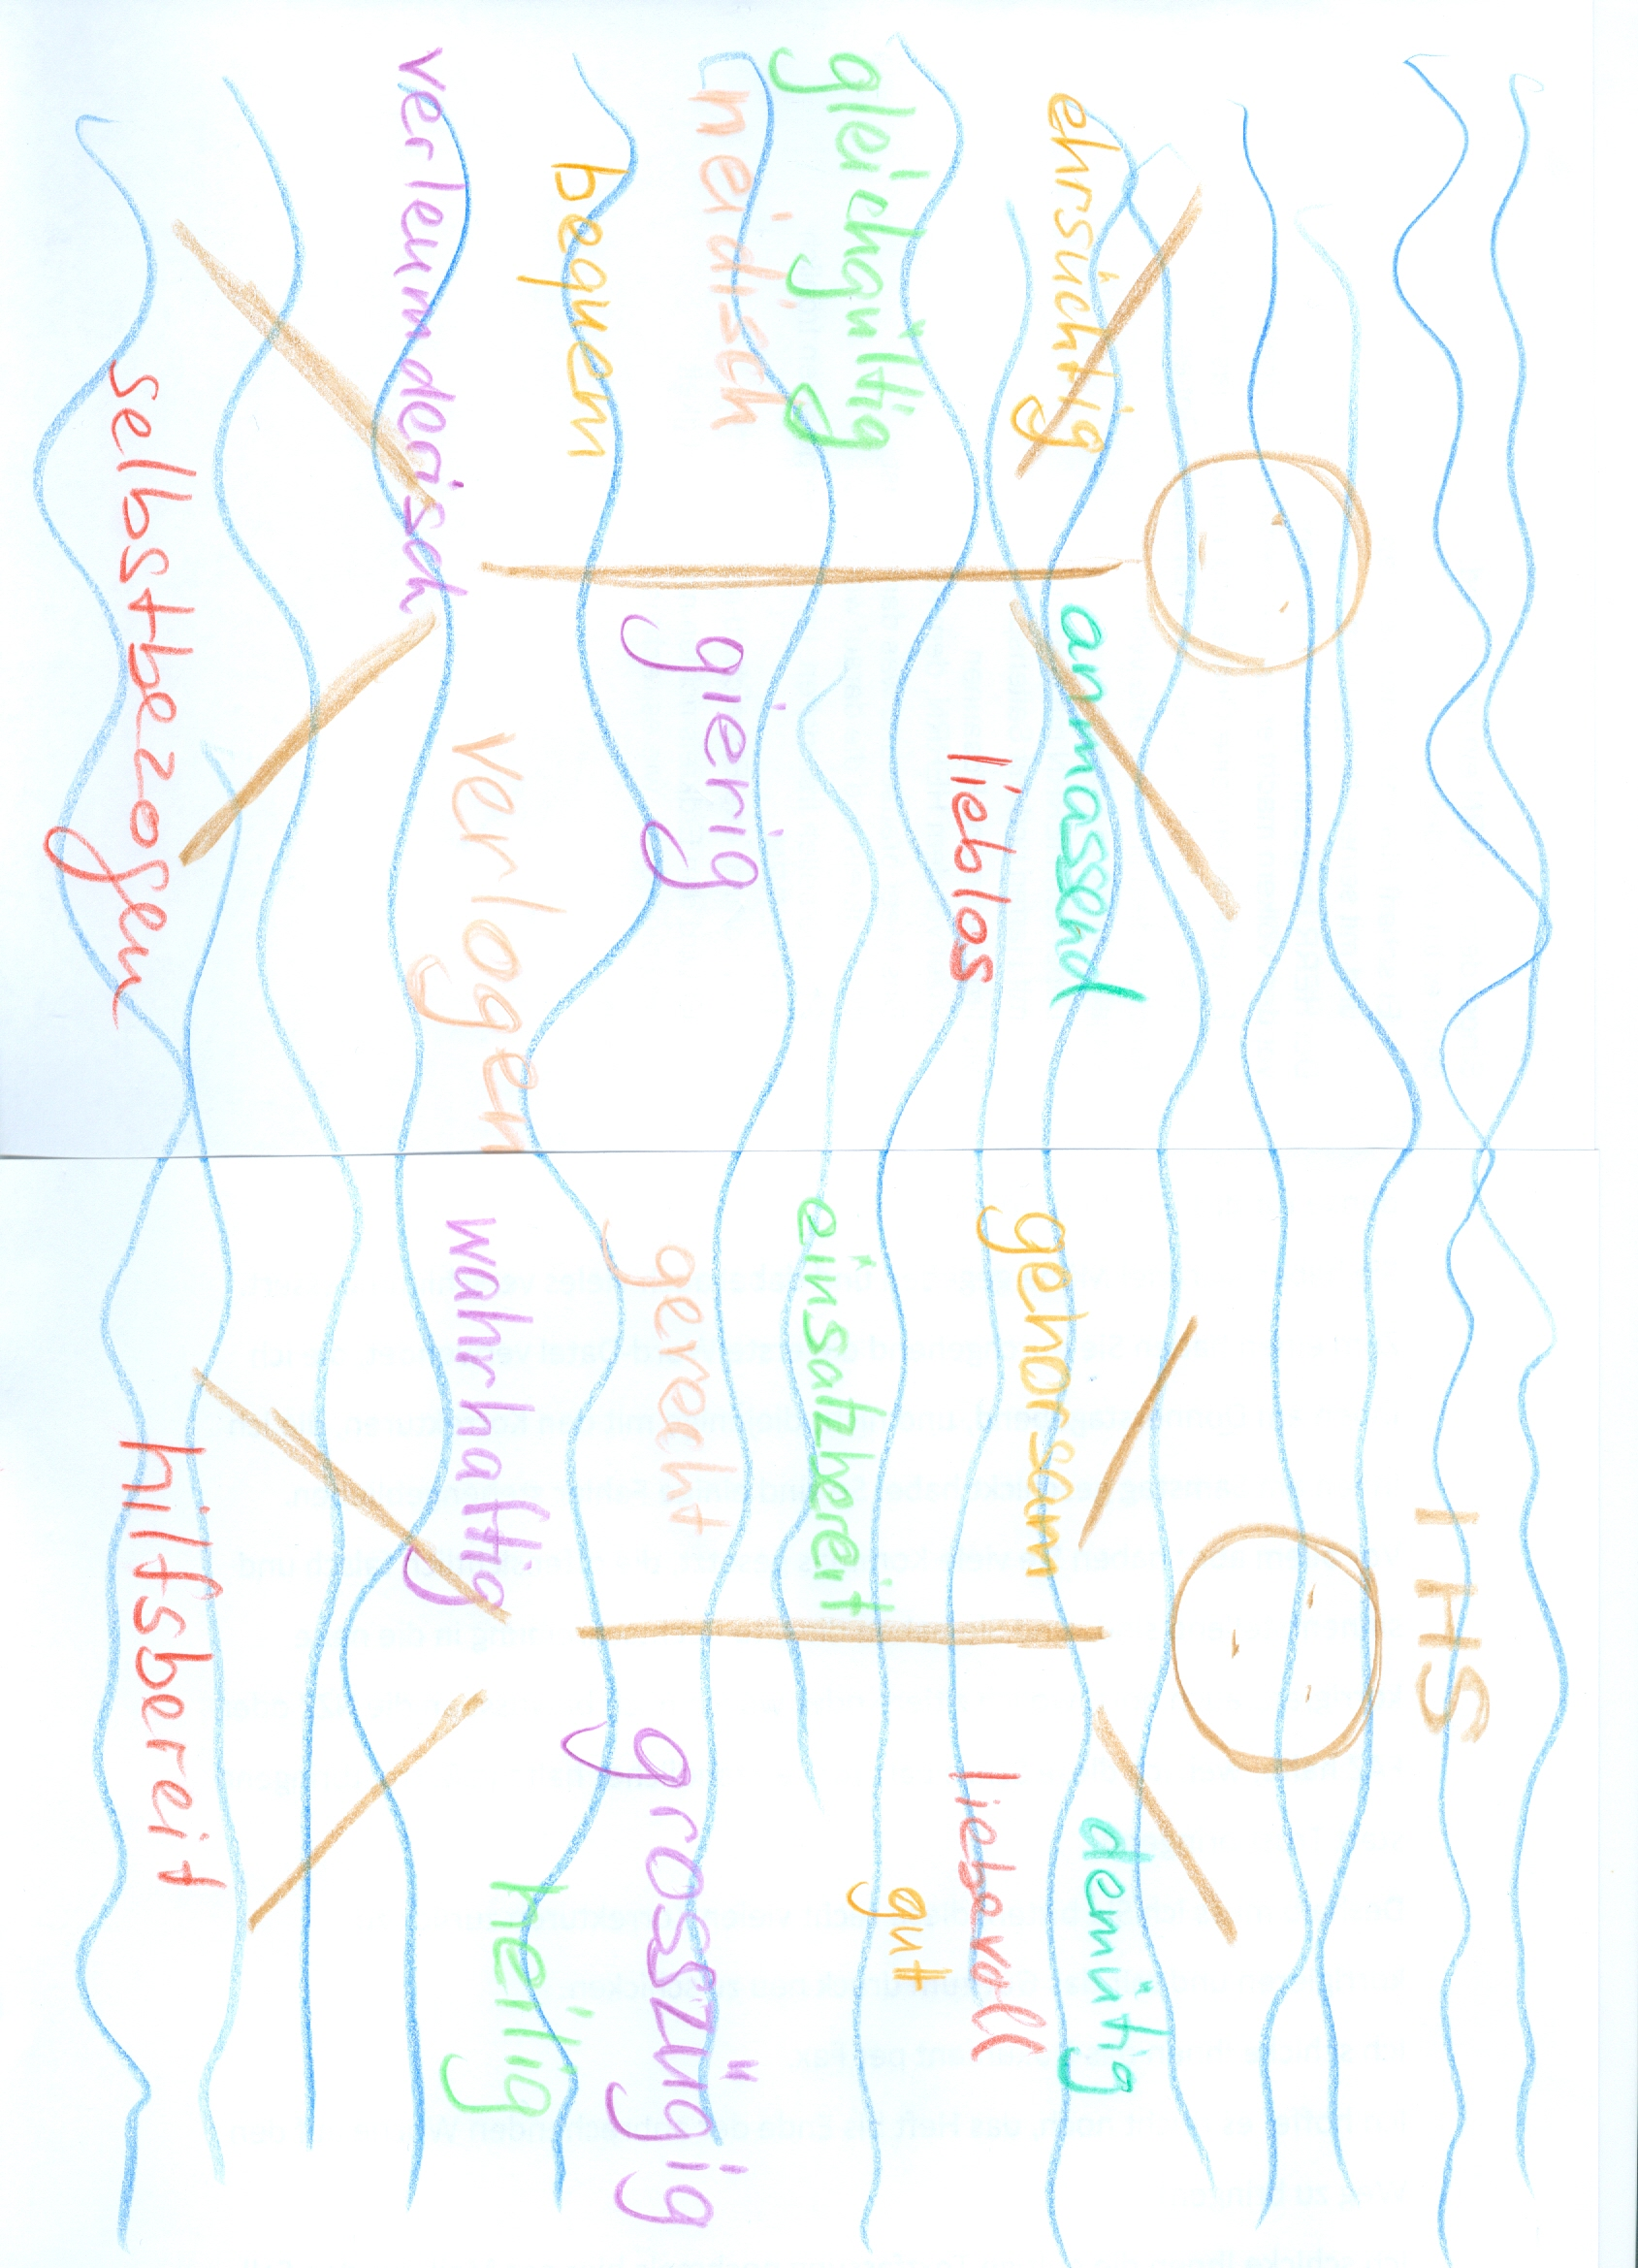 ehrsüchtig
anmassend
lieblos
gleichgültig
neidisch
gierig
bequem
verlogen
verleumderisch
selbstbezogen
IHS
gehorsam
demütig
liebevoll
einsatzbereit
gut
gerecht
grosszügig
wahrhaftig
heilig
hilfsbereit